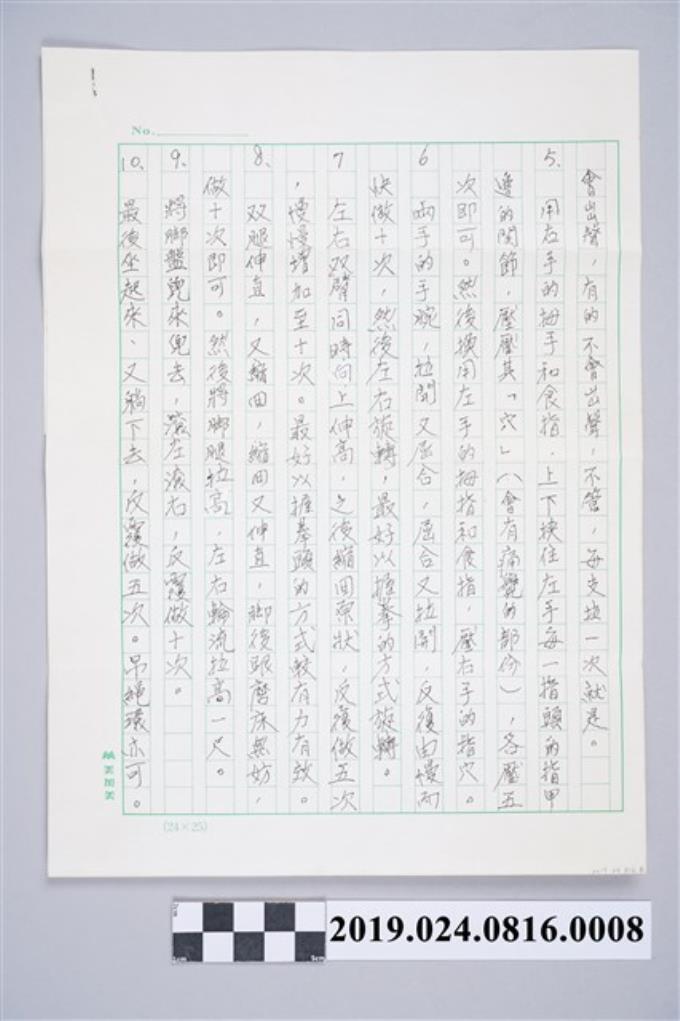 No.
會出聲，有的不會出聲，不管，每支拉一次就是。
5、用右手的拇手和食指，上下挾住左手每一指頭的指甲
邊的関節，壓壓其「穴」（會有痛覺的部份），各壓五
次即可。然後換用左手的拇指和食指，壓右手的指穴。
6 両手的手腕，拉開又屈合，屈合又拉開，反復由慢而
快做十次，然後左右旋轉，最好以握拳的方式旋轉。
7 左右双臂同時向上伸高，之後縮回原狀，反復做五次
，慢慢增加至十次。最好以握拳頭的方式較有力有效。
8、双腿伸直，又縮回，縮回又伸直，脚後跟磨床無妨，
做十次即可。然後將脚腿拉高，左右輪流拉高一尺。
9、將脚盤兜來兜去，滾左滾右，反覆做十次。
10、最後坐起來、又躺下去，反覆做五次。吊繩環亦可。
(24×25)
2019.024.0816.0008